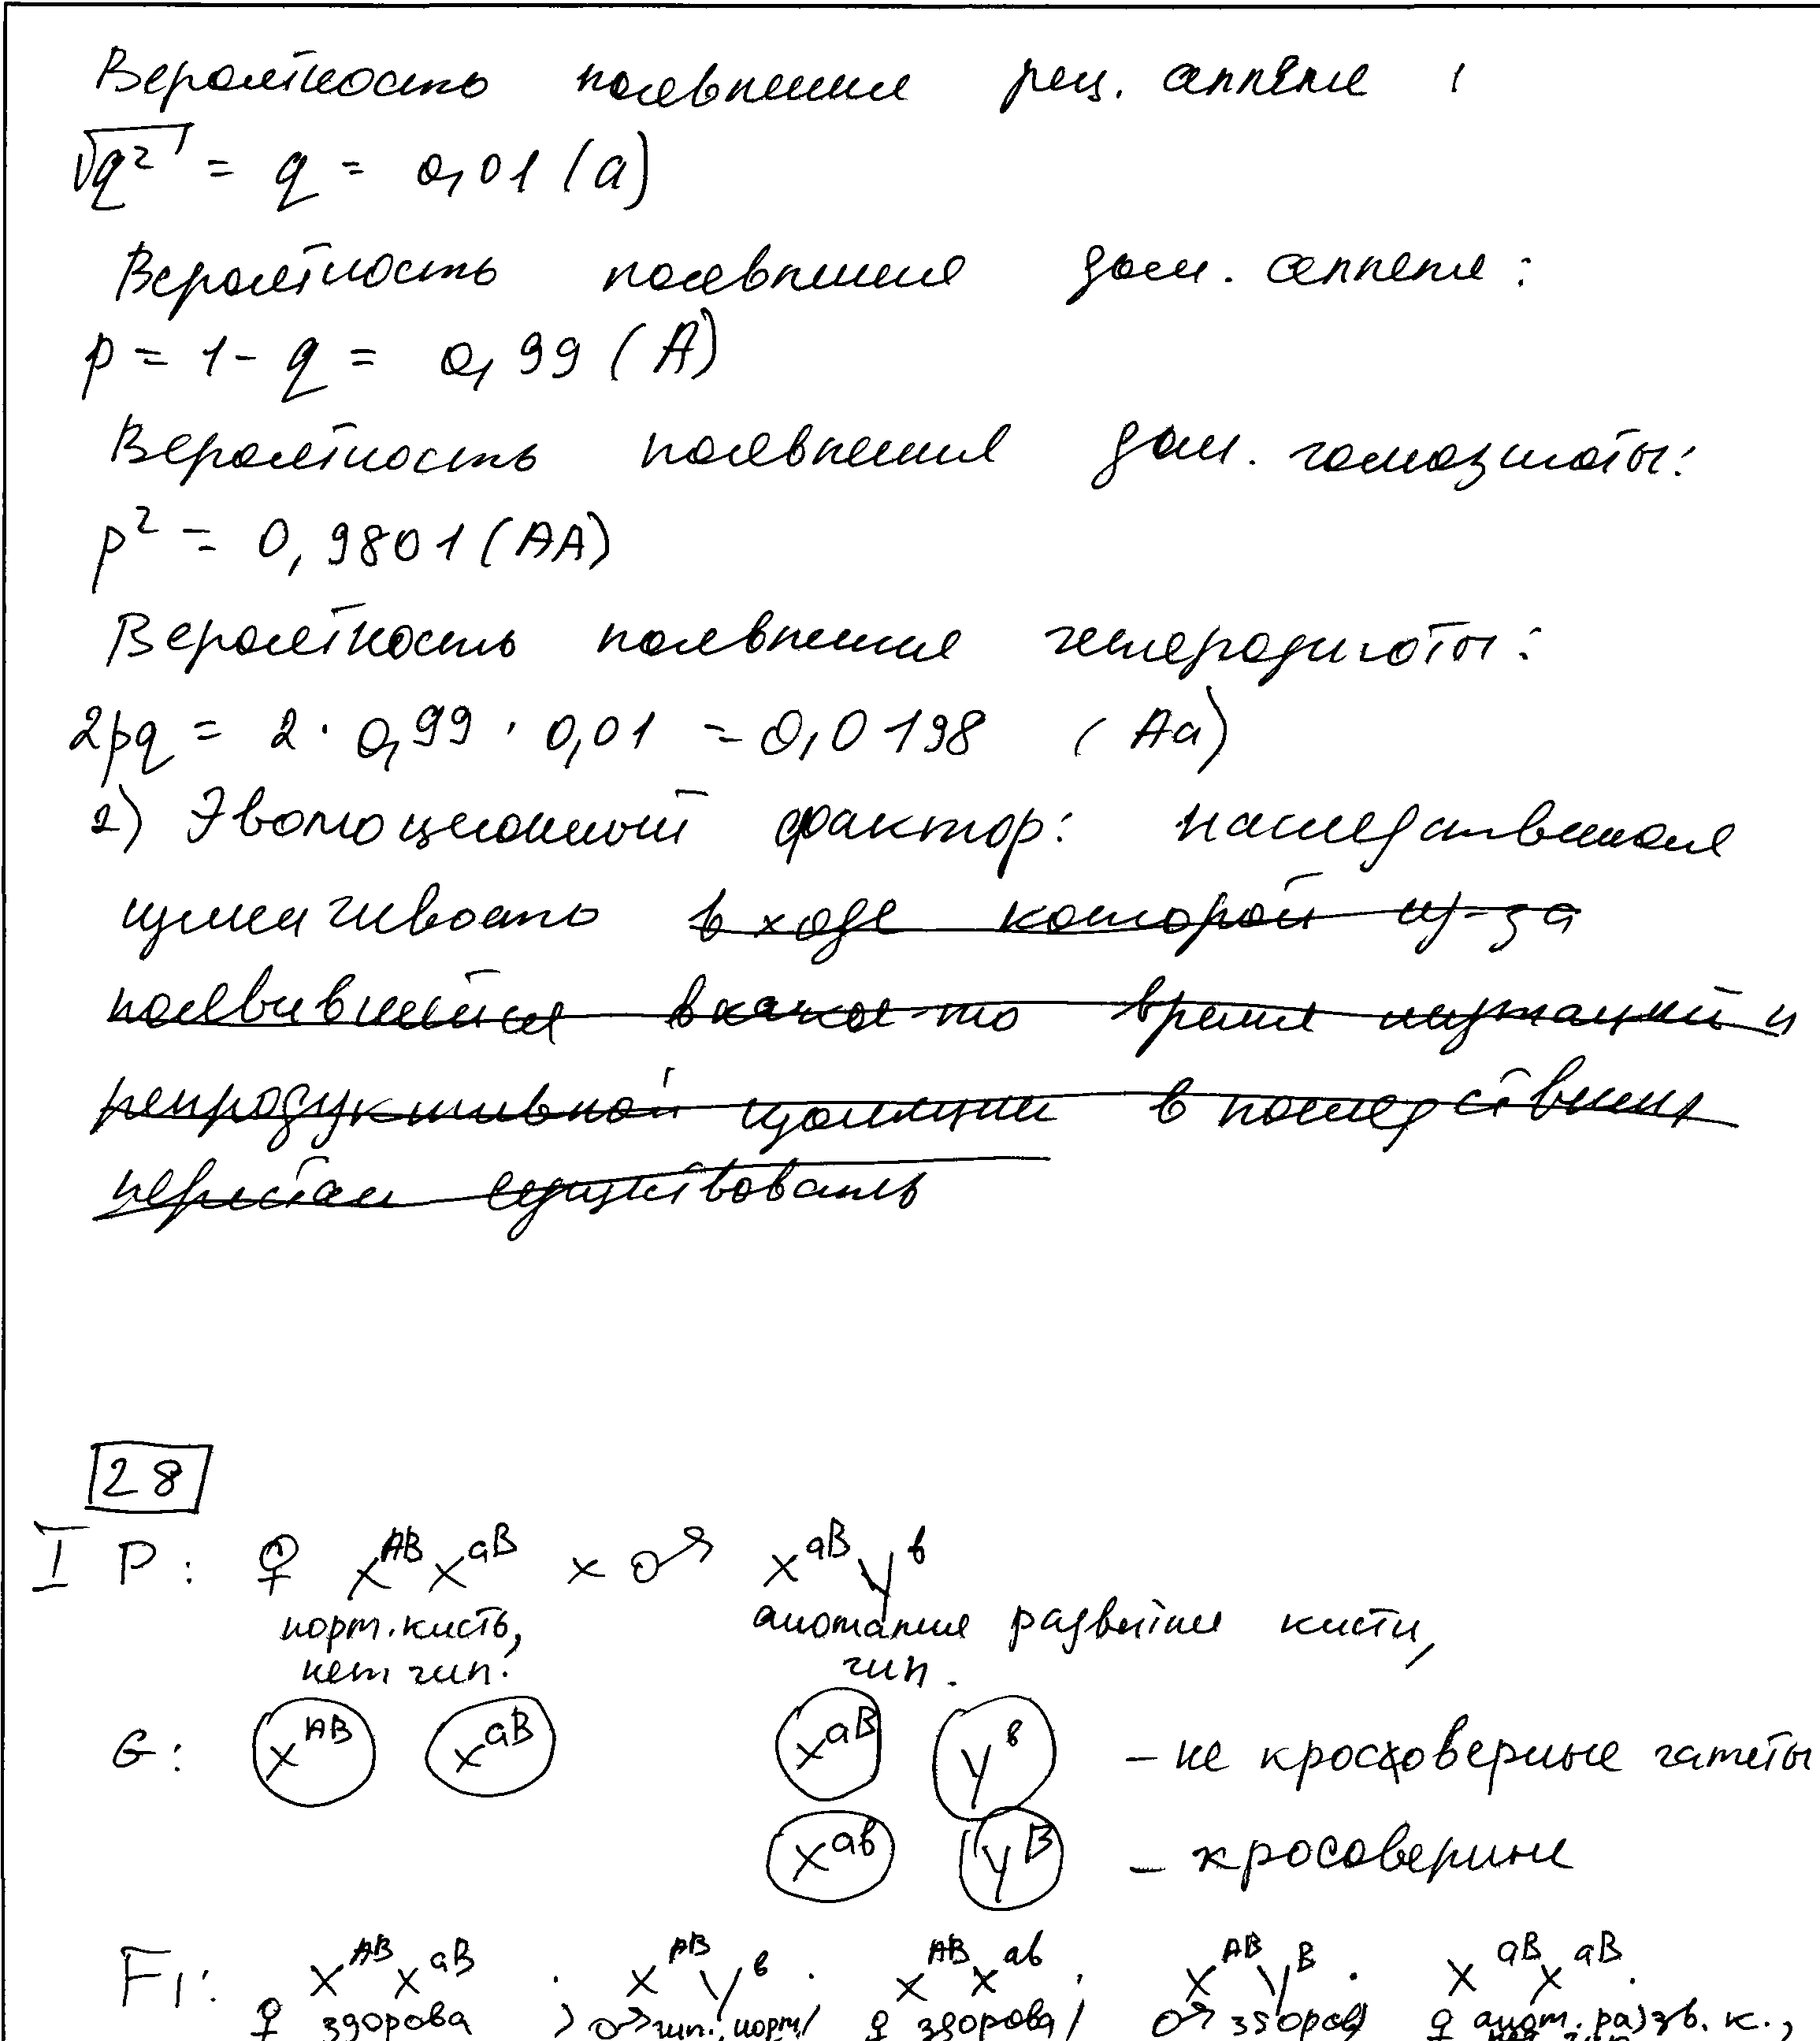 Вероятность появления рец. аллеля :
√q² = q = 0,01 (а)
Вероятность появления дом. аллеля :
p = 1 - q = 0,99 (А)
Вероятность появления дом. гомозиготы:
p² = 0,9801 (АА)
Вероятность появления гетерозиготы:
2pq = 2 · 0,99 · 0,01 = 0,0198 (Аа)
2) Эволюционный фактор: наследственная
изменчивость в ходе которой из-за
появившейся в какое-то время мутаций и
репродуктивной изоляции в последствии
перестал существовать
28
I P: ♀ X^AB X^aB x ♂ X^aB Y^в
норм. кисть, аномалия развития кисти,
нет гип. гип.
G: X^AB X^aB X^aB Y^в - не кроссоверные гаметы
X^aв Y^B - кросоверные
F1: X^AB X^aB ; X^AB Y^в ; X^AB X^aв ; X^AB Y^B ; X^aB X^aB ;
♀ здорова ; ♂ гип., норм ; ♀ здорова ; ♂ здоров ; ♀ аном. разв. к.,